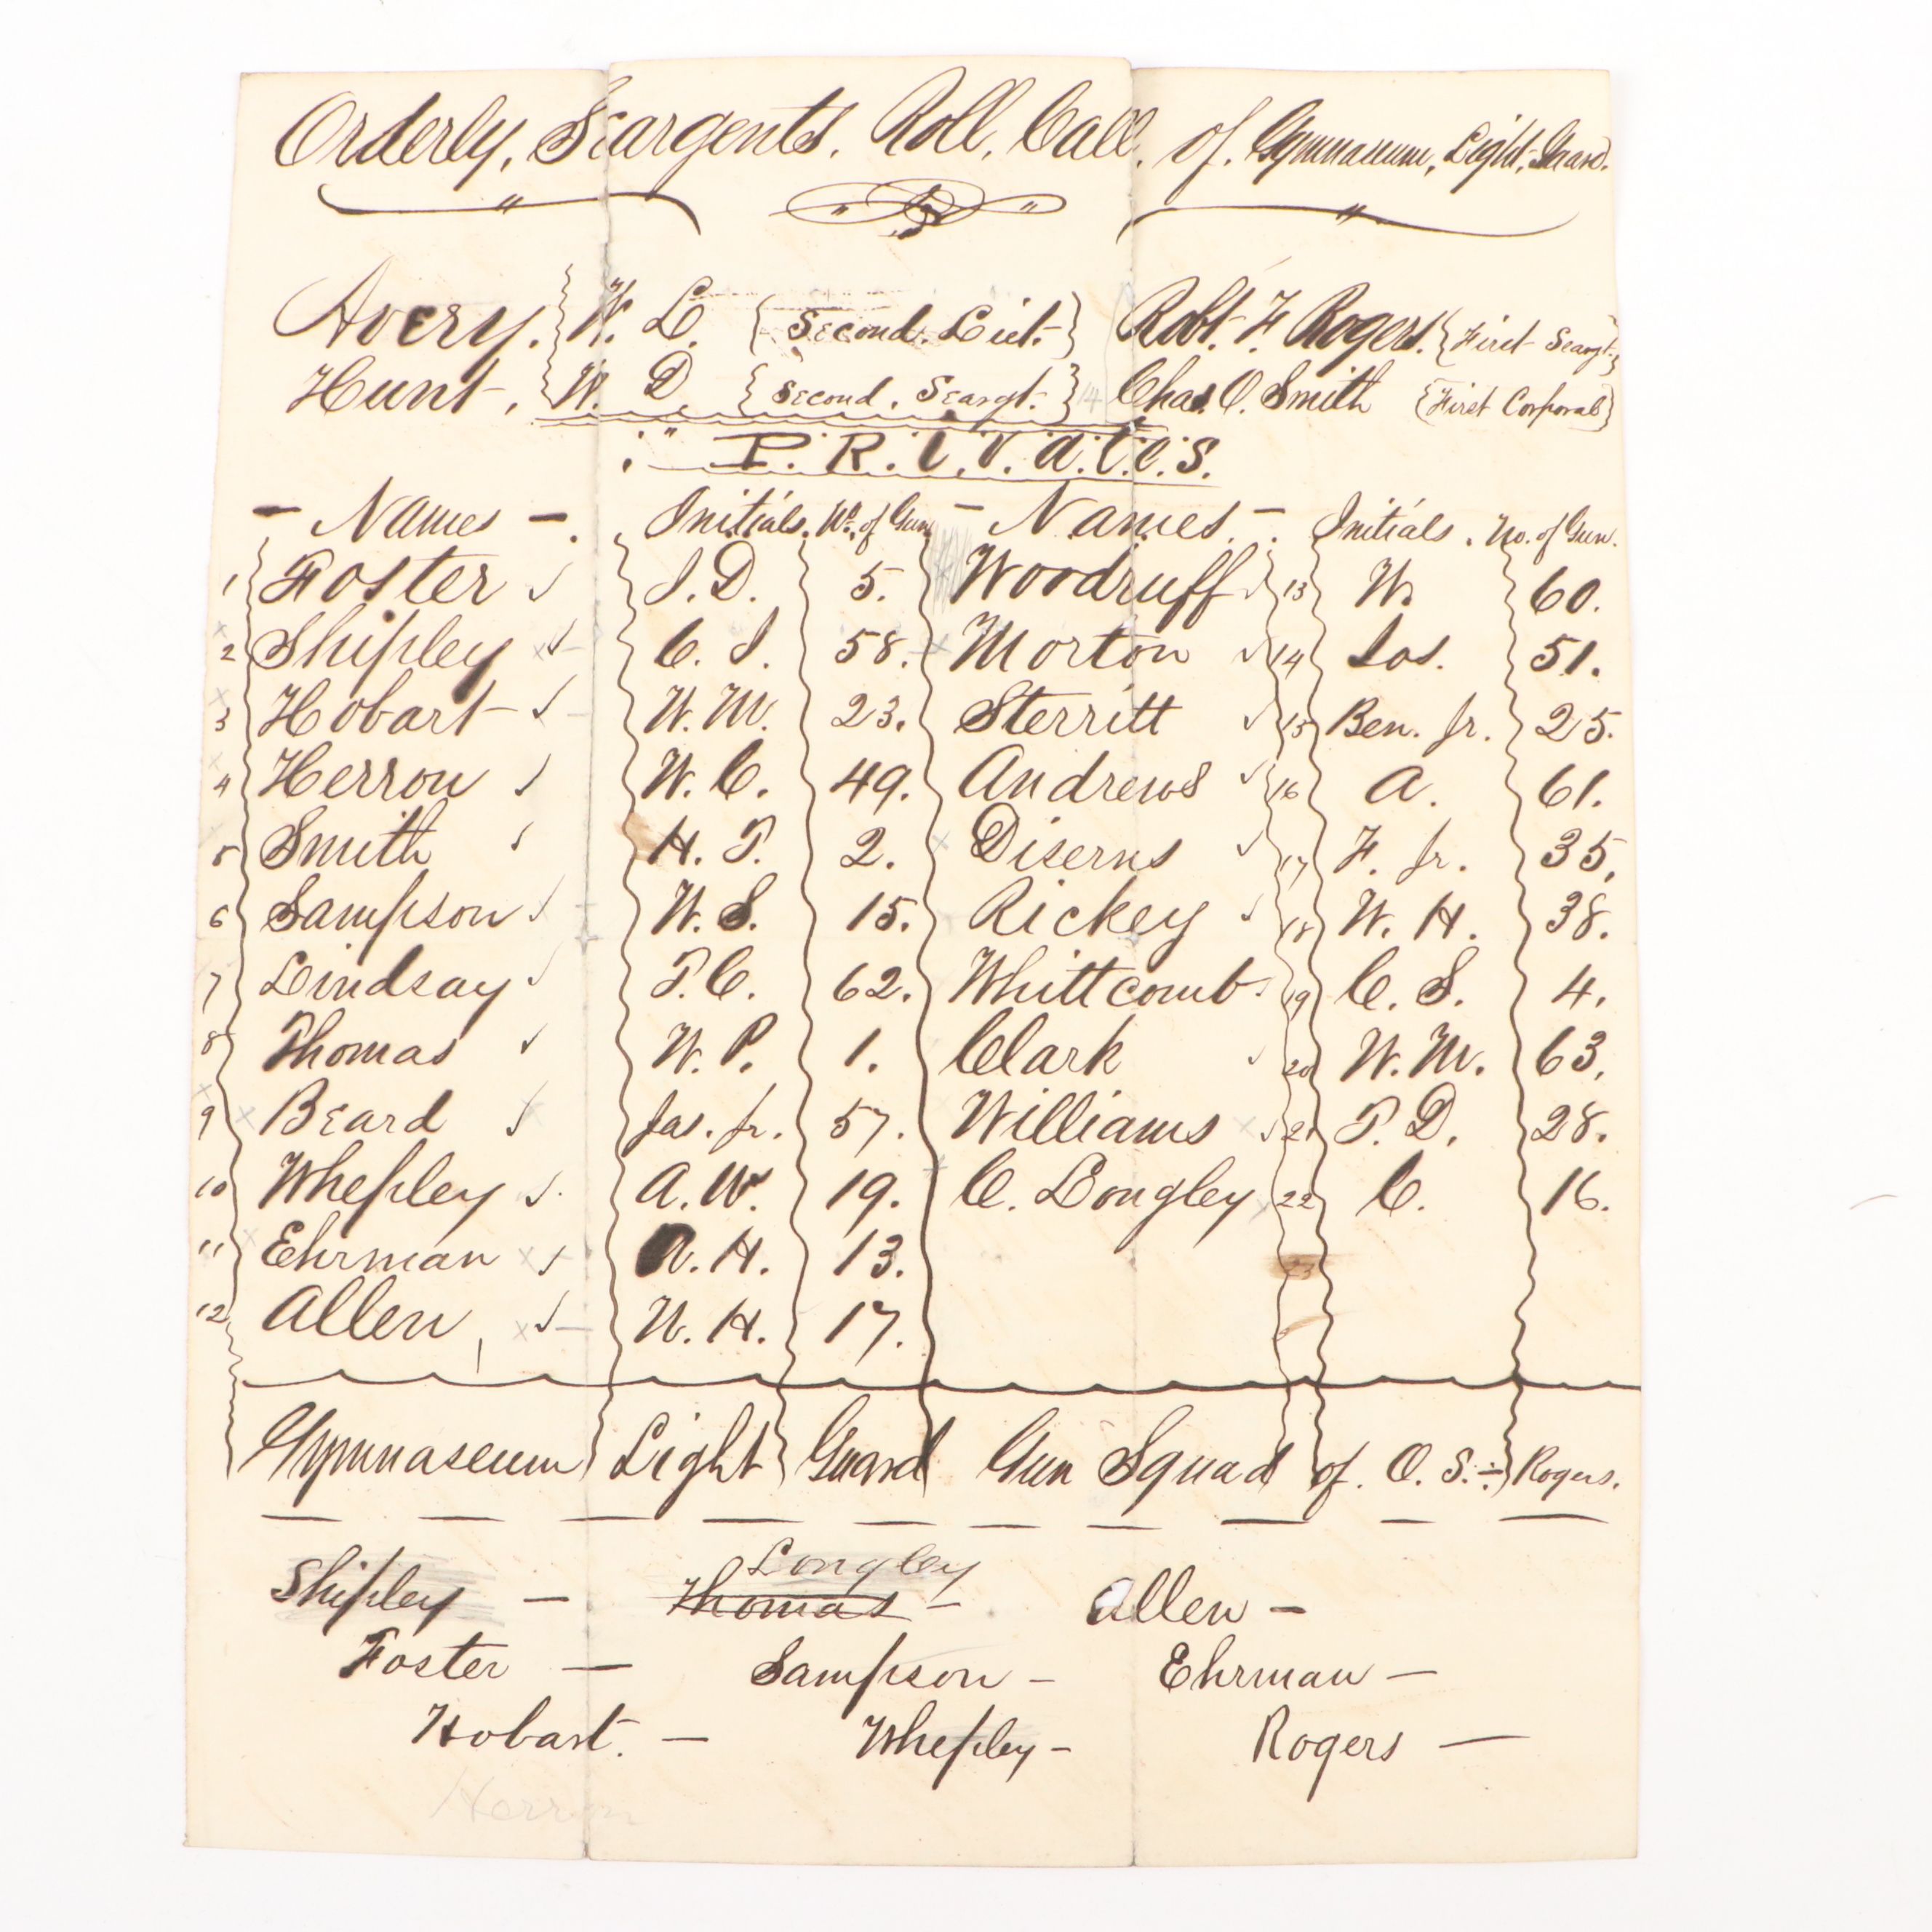 Orderly, Seargents. Roll, Call. of. Gymnaseum, Light, Guard.
Avery. W. L. {Second. Liet.} Robt. F. Rogers. {First Seargt.}
Hunt, W. D {Second. Seargt.} 14 Chas. O. Smith {First Corporal}
P. R. I. V. A. T. E. S.
- Names - . Initials. No. of Gun - Names. - . Initials . No. of Gun.
1 Foster ✓ J. D. 5. Woodruff ✓ 13 W. 60.
2 Shipley ✓ C. J. 58. Morton ✓ 14 Jos. 51.
3 Hobart ✓ W. M. 23. Sterritt ✓ 15 Ben. Jr. 25.
4 Herron ✓ W. C. 49. Andrews ✓ 16 A. 61.
5 Smith ✓ H. T. 2. Diserns ✓ 17 F. Jr. 35.
6 Sampson ✓ W. S. 15. Rickey ✓ 18 W. H. 38.
7 Lindsay ✓ T. C. 62. Whittcomb. 19 C. S. 4.
8 Thomas ✓ W. P. 1. Clark ✓ 20 W. M. 63.
9 x Beard ✓ Jas. Jr. 57. Williams x ✓ 21 T. D. 28.
10 Whepley ✓ A. W. 19. C. Longley 22 C. 16.
11 x Ehrman x ✓ A. H. 13. 23
12 Allen x ✓ W. H. 17.
Gymnaseum Light Guard Gun Squad of. O. S. Rogers.
Longley
Shipley - Thomas - Allen -
Foster - Sampson - Ehrman -
Hobart. - Whepley - Rogers -
Herron